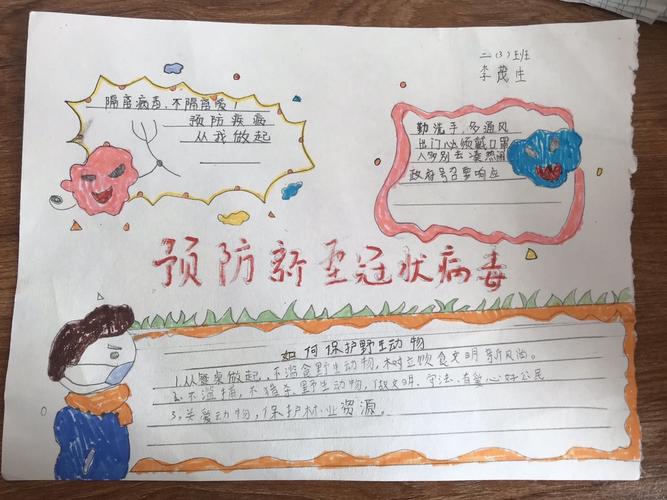 二(3)班
李茂生
隔离病毒,不隔离爱!
预防疾病
从我做起
勤洗手,多通风
出门必须戴口罩
人多别去凑热闹
政府号召要响应
预防新型冠状病毒
如何保护野生动物
1.从餐桌做起,不滥食野生动物,树立饮食文明新风尚。
2.不滥捕,不猎杀野生动物,做文明、守法、有爱心好公民
3.关爱动物,保护林业资源。